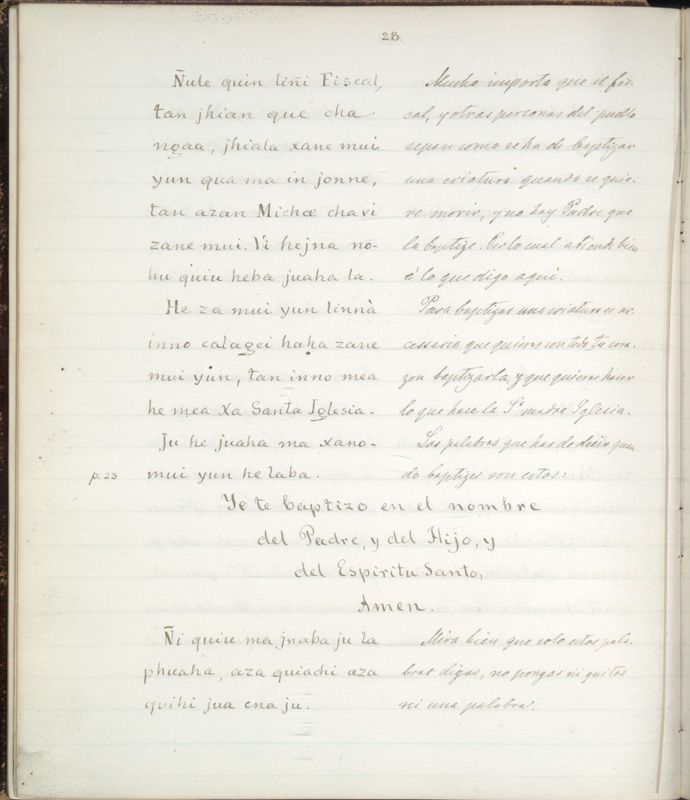 28.
Ñule quin liñi Fiscal,
tan jhian que cha
ngaa, jhiala xane mui
yun qua ma in jonne,
tan azan Michæ chavi
zane mui. Vi hejna no-
hu quiu heba juaha la.
He za mui yun linnà
inno calagei haha zane
mui yun, tan inno mea
he mea xa Santa Iglesia.
Ju he juaha ma xano-
mui yun he laba.
Mucho importa que el fis-
cal, y otras personas del pueblo
sepan como se ha de baptizar
una criatura quando se quie-
re morir, y no hay Padre que
la baptize. Por lo cual atiende bien
é lo que digo aquí.
Para baptizar una criatura es ne-
cessario que quieras con todo tu cora-
zon baptizarla, y que quieras hacer
lo que hace la Sta madre Iglesia.
Las palabras que has de decir quan-
do baptizes son estas:
p. 23
Yo te baptizo en el nombre
del Padre, y del Hijo, y
del Espiritu Santo,
Amen.
Ñi quiu ma jnaba ju la
phuaha, aza quiachi aza
quihi jua cna ju.
Mira bien que solo estas pala-
bras digas, no pongas ni quites
ni una palabra.